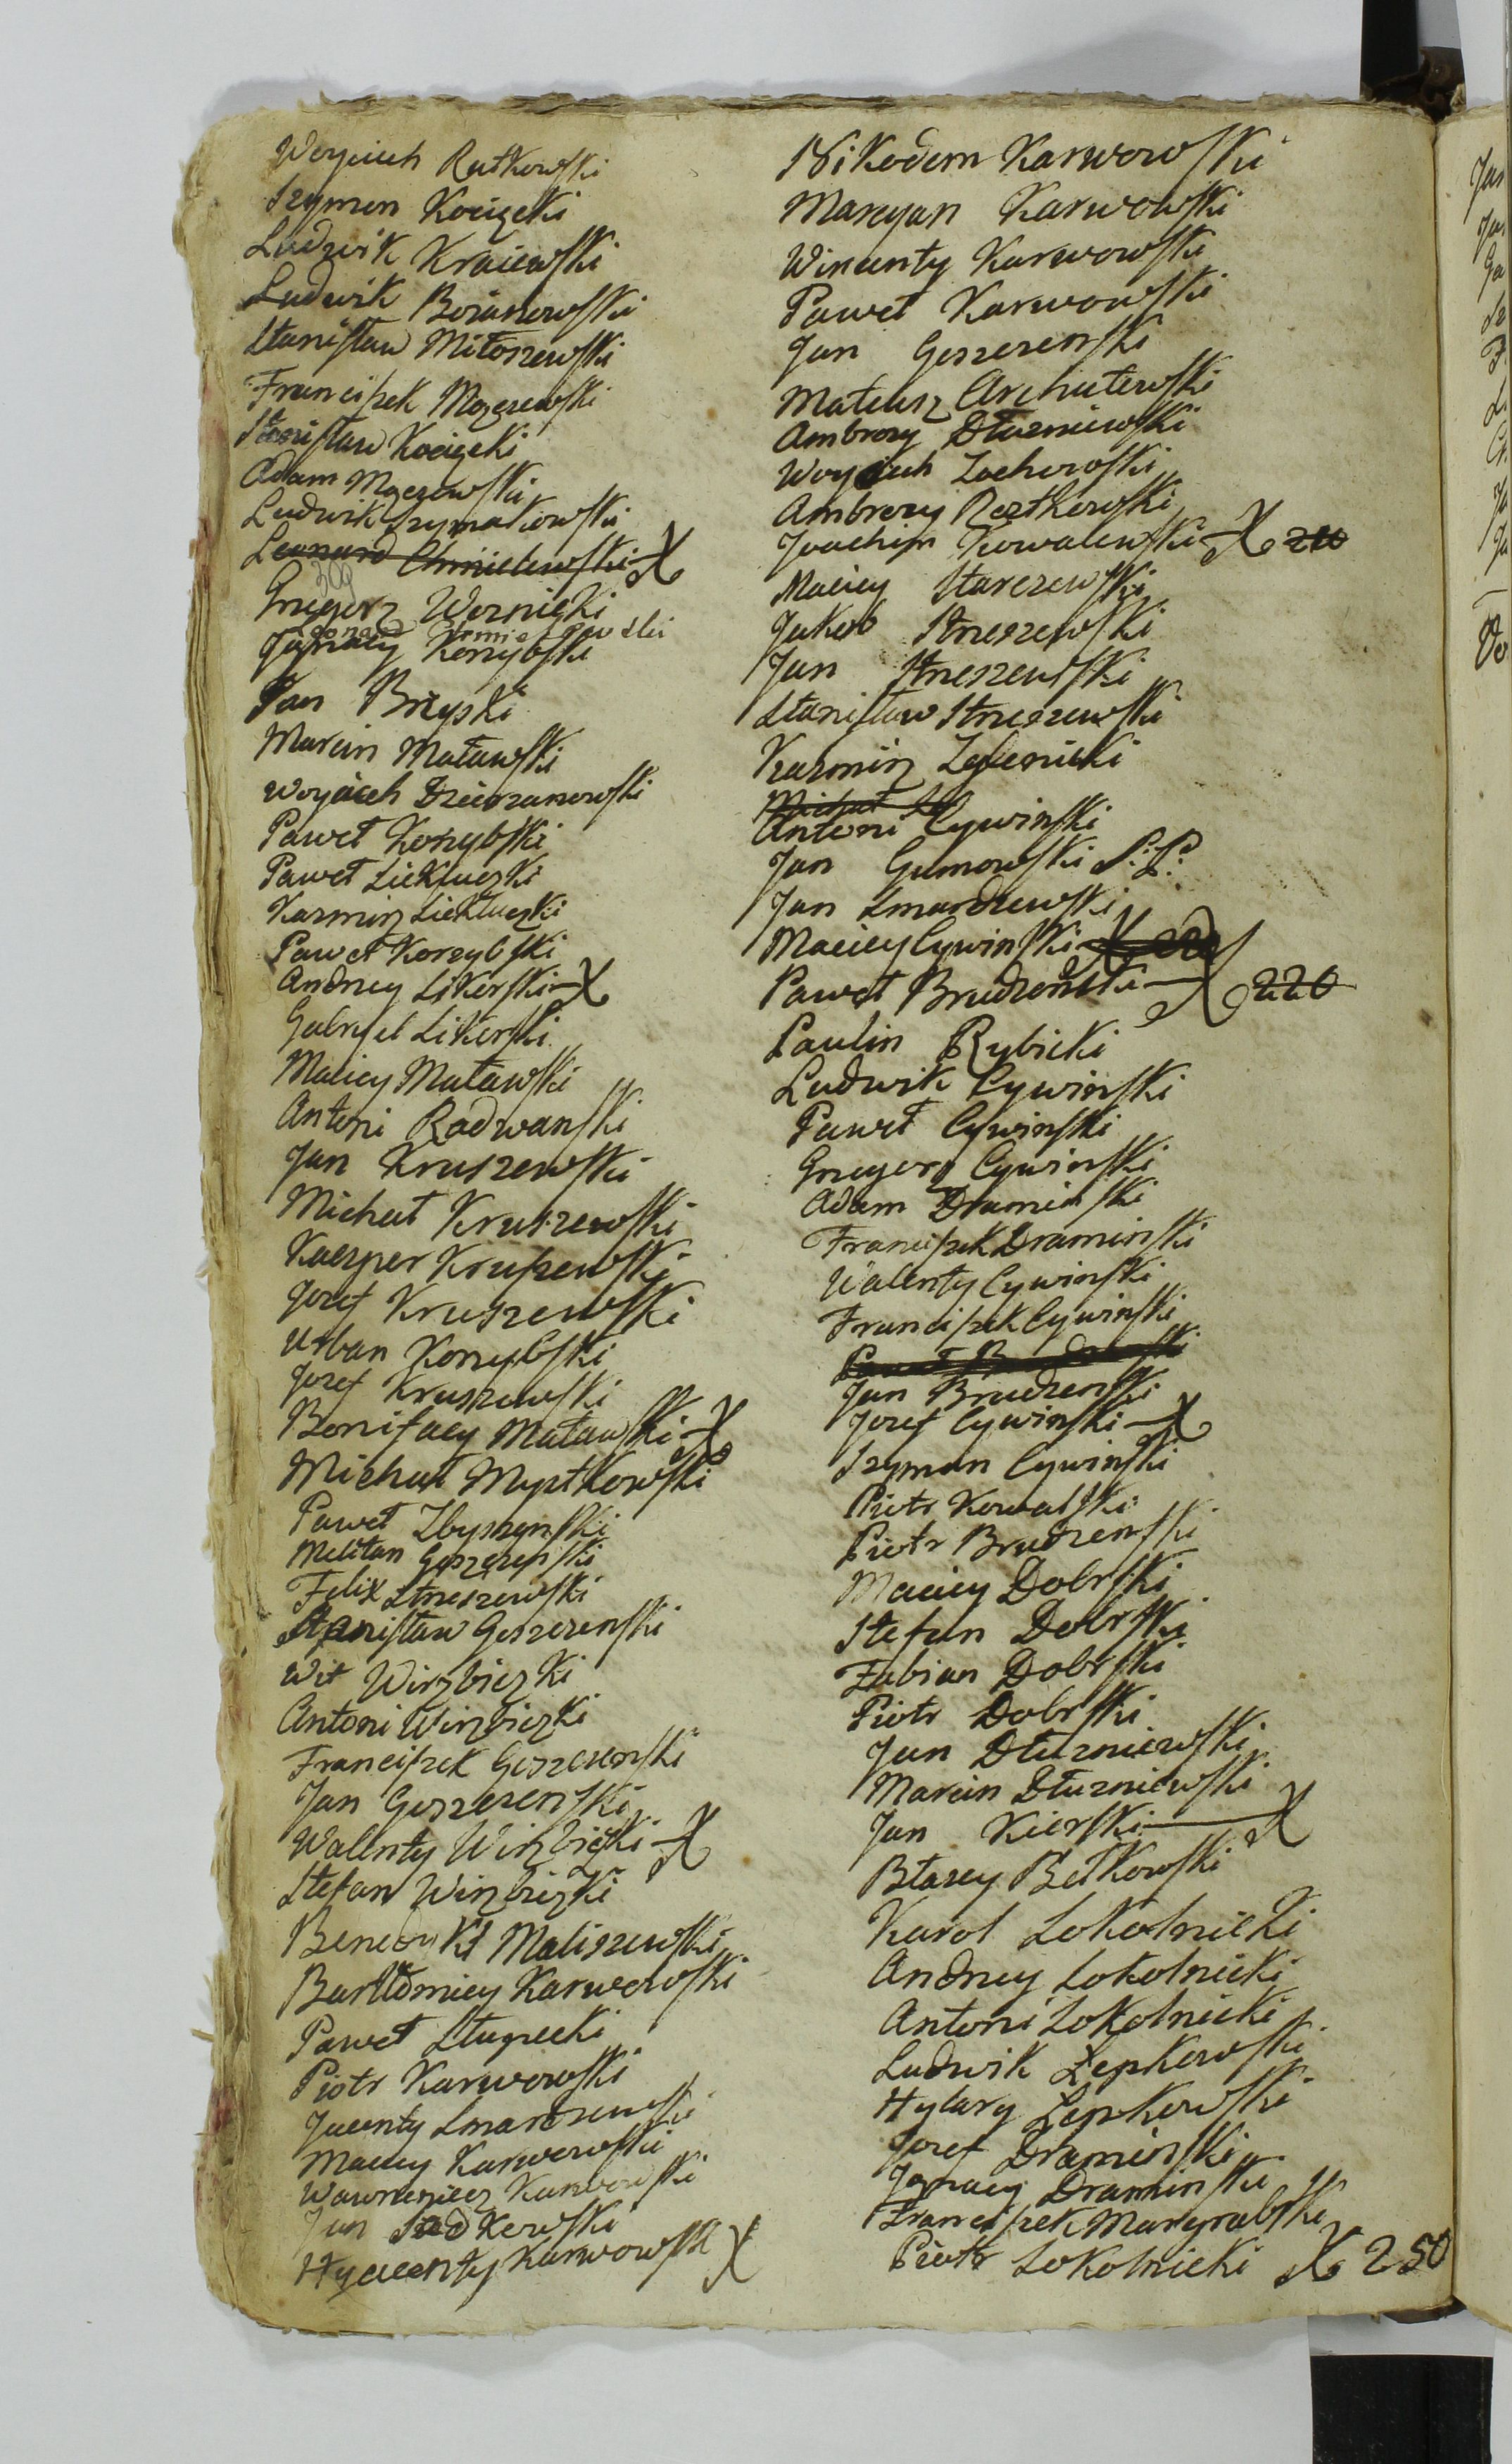 Woyciech Rutkowski
Szymon Kocięcki
Ludwik Kraiewski
Ludwik Boianowski
Stanisław Miłoszewski
Franciszek Mgczewski
Stanisław Kocięcki
Adam Mgczewski
Ludwik Szymakowski
Leonard Chmielewski X
Grzegorz Wernicki
Leonard Chmielewski
Ignacy Korzybski
Jan Brzyski
Marcin Matawski
Woyciech Dzierzanowski
Paweł Korzybski
Paweł Siekluczki
Kazmirz Siekluczki
Paweł Korzybski
Andrzey Sikorski X
Gabryel Sikorski
Maciey Matawski
Antoni Radwanski
Jan Kruszewski
Michał Kruszewski
Kaczper Kruszewski
Jozef Kruszewski
Urban Korzybski
Jozef Kruszewski
Bonifacy Matawski X
Michał Mystkowski
Paweł Zbyszynski
Melitan Goszczenski
Felix Strzeszewski
Stanisław Goszczenski
Wit Wirzbiczki
Antoni Wirzbiczki
Franciszek Goszczenski
Jan Goszczenski
Walenty Wirzbiczki X
Stefan Wirzbiczki
Benedykt Maliszewski
Bartłomiey Karwowski
Paweł Słupecki
Piotr Karwowski
Jacenty Smardzewski
Maciey Karwowski
Wawrzeniec Karwowski
Jan Sadkowski
Hyacenty Karwowski X
Nikodem Karwowski
Marcyan Karwowski
Wincenty Karwowski
Paweł Karwowski
Jan Goszczenski
Mateusz Archutowski
Ambrozy Dłuzniewski
Woyciech Zochowski
Ambrozy Rostkowski
Joachim Kowalewski X 210
Maciey Starczewski
Jakub Strzeszewski
Jan Strzeszewski
Stanisław Strzeszewski
Kazmirz Zglenicki
Michał
Antoni Cywinski
Jan Gumowski S: P:
Jan Smardzewski
Maciey Cywinski X 220
Paweł Brudzenski X 220
Paulin Rybicki
Ludwik Cywinski
Paweł Cywinski
Grzegorz Cywinski
Adam Draminski
Franciszek Draminski
Walenty Cywinski
Franciszek Cywinski
Paweł Brudzenski
Jan Brudzenski
Jozef Cywinski X
Szymon Cywinski
Piotr Kowalski
Piotr Brudzenski
Maciey Dobrski
Stefan Dobrski
Fabian Dobrski
Piotr Dobrski
Jan Dłuzniewski
Marcin Dłuzniewski
Jan Kierski X
Błazey Bełkowski
Karol Sokolnicki
Andrzey Sokolnicki
Antoni Sokolnicki
Ludwik Zepkowski
Hylary Zepkowski
Jozef Draminski
Ignacy Draminski
Franciszek Margrabski
Piotr Sokolnicki X 250